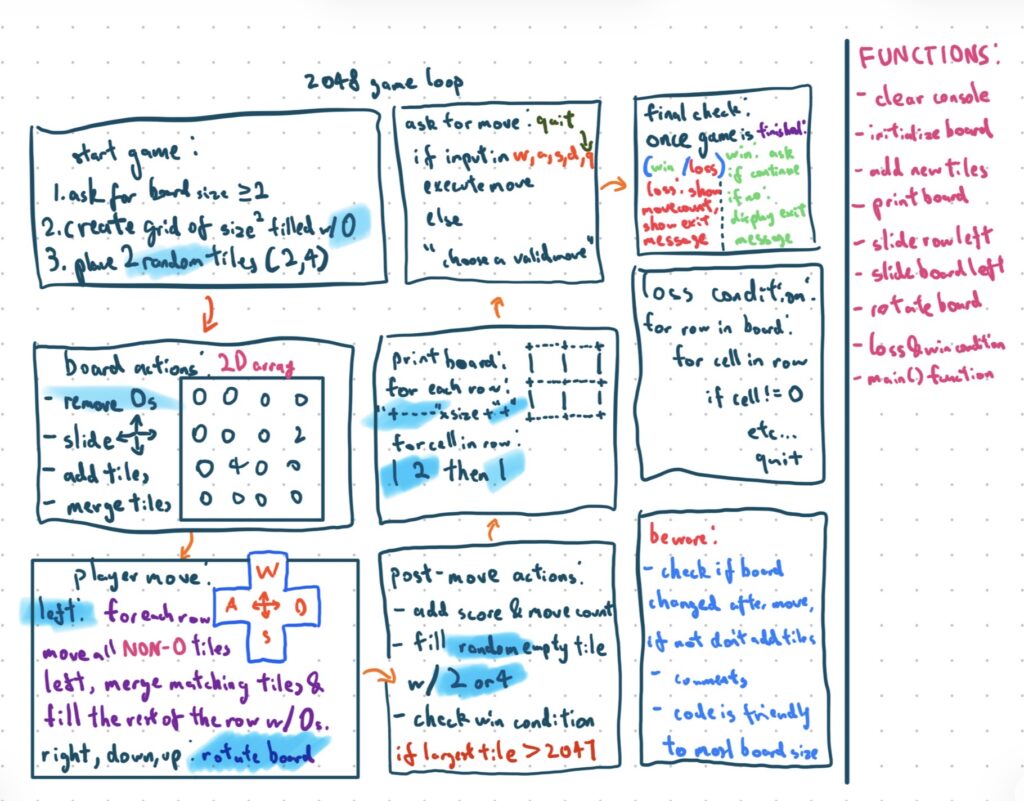 2048 game loop
start game:
1. ask for board size ≥2
2. create grid of size² filled w/ 0
3. place 2 random tiles (2,4)
board actions: 2D array
- remove 0s
- slide
- add tiles
- merge tiles
0 0 0 0
0 0 0 2
0 4 0 0
0 0 0 0
player move:
W
A D
S
left: for each row
move all NON-0 tiles
left, merge matching tiles &
fill the rest of the row w/ 0s.
right, down, up: rotate board
ask for move: quit
if input in w,a,s,d,q
execute move
else
"choose a valid move"
print board:
for each row:
"+----"x size + "+"
for cell in row:
| 2 then |
post-move actions:
- add score & move count
- fill random empty tile
w/ 2 or 4
- check win condition
if largest tile > 2047
final check:
once game is finished:
(win/loss)
loss: show
movecount,
show exit
message
win: ask
if continue
if no:
display exit
message
loss condition:
for row in board:
for cell in row
if cell != 0
etc...
quit
beware:
- check if board
changed after move,
if not don't add tiles
- comments
- code is friendly
to most board size
FUNCTIONS:
- clear console
- initialize board
- add new tiles
- print board
- slide row left
- slide board left
- rotate board
- loss & win condition
- main() function